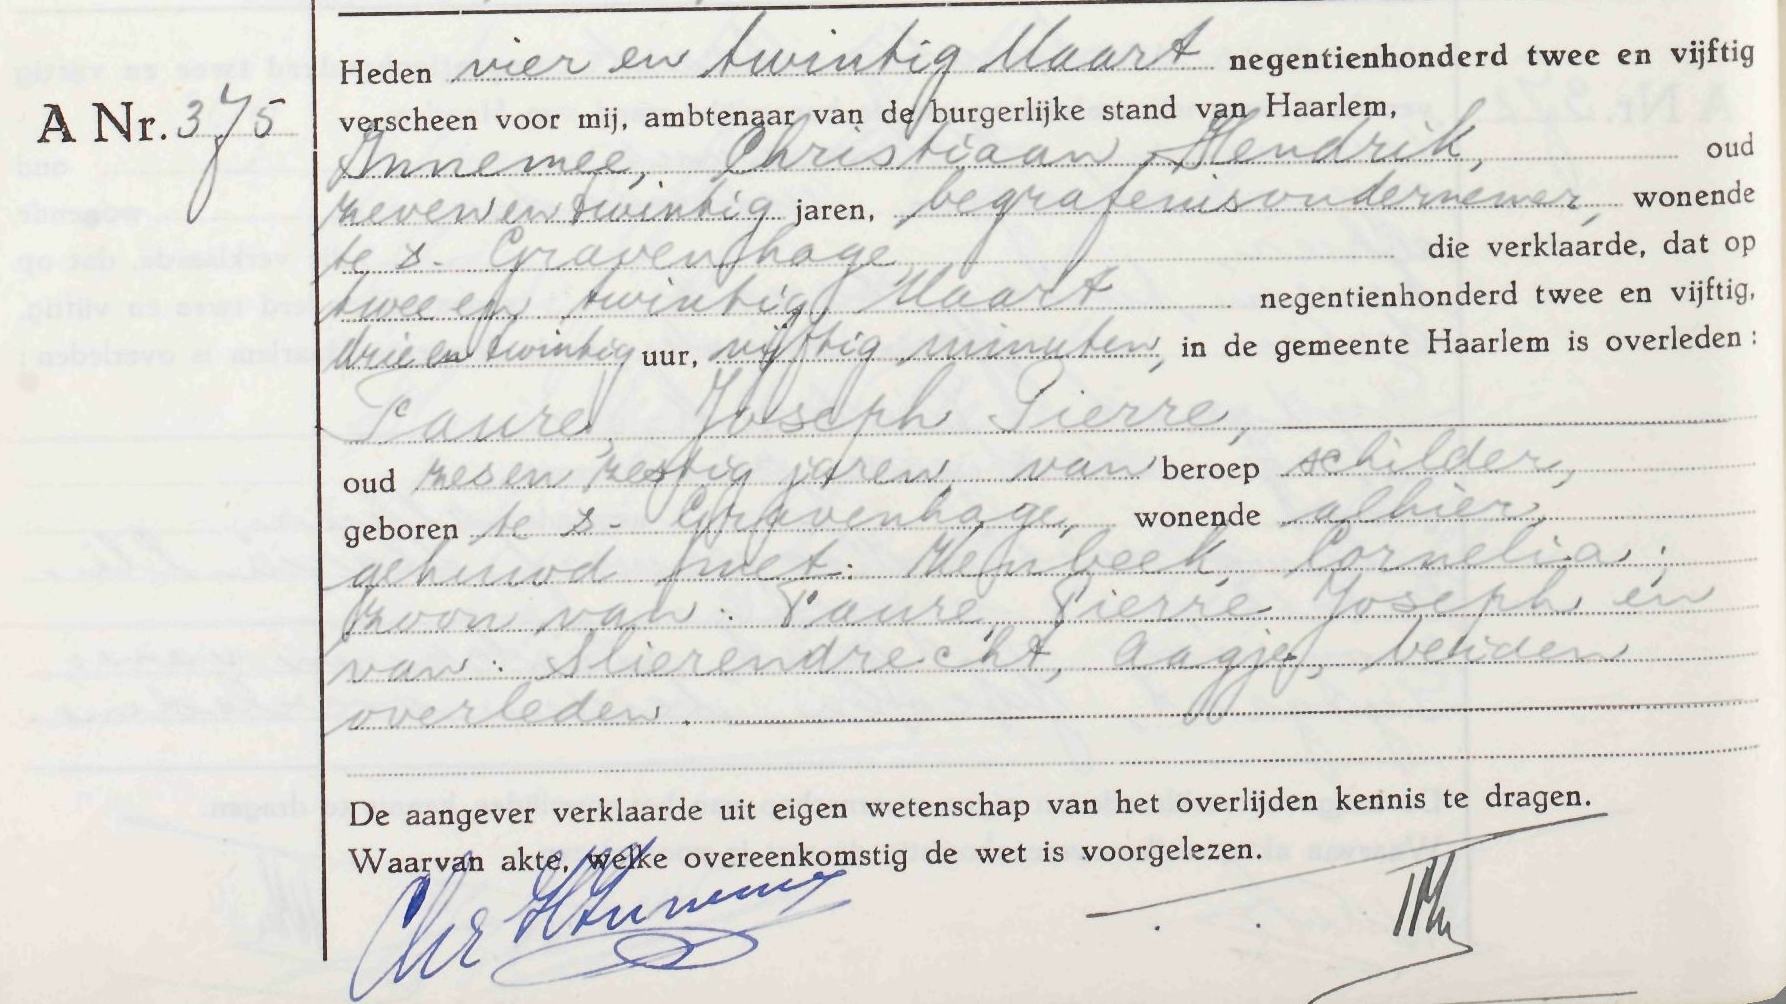 Heden vier en twintig Maart negentienhonderd twee en vijftig
A Nr. 375
verscheen voor mij, ambtenaar van de burgerlijke stand van Haarlem,
Innemee, Christiaan Hendrik, oud
zeven en twintig jaren, begrafenisondernemer, wonende
te s-Gravenhage die verklaarde, dat op
twee en twintig Maart negentienhonderd twee en vijftig,
drie en twintig uur, vijftig minuten, in de gemeente Haarlem is overleden:
Faure, Joseph Pierre,
oud zes en zestig jaren, van beroep schilder,
geboren te s-Gravenhage, wonende alhier,
gehuwd met: Cornelia;
zoon van: Faure, Pierre Joseph en
van: Slierendrecht, Aagje, beiden
overleden.
De aangever verklaarde uit eigen wetenschap van het overlijden kennis te dragen.
Waarvan akte, welke overeenkomstig de wet is voorgelezen.